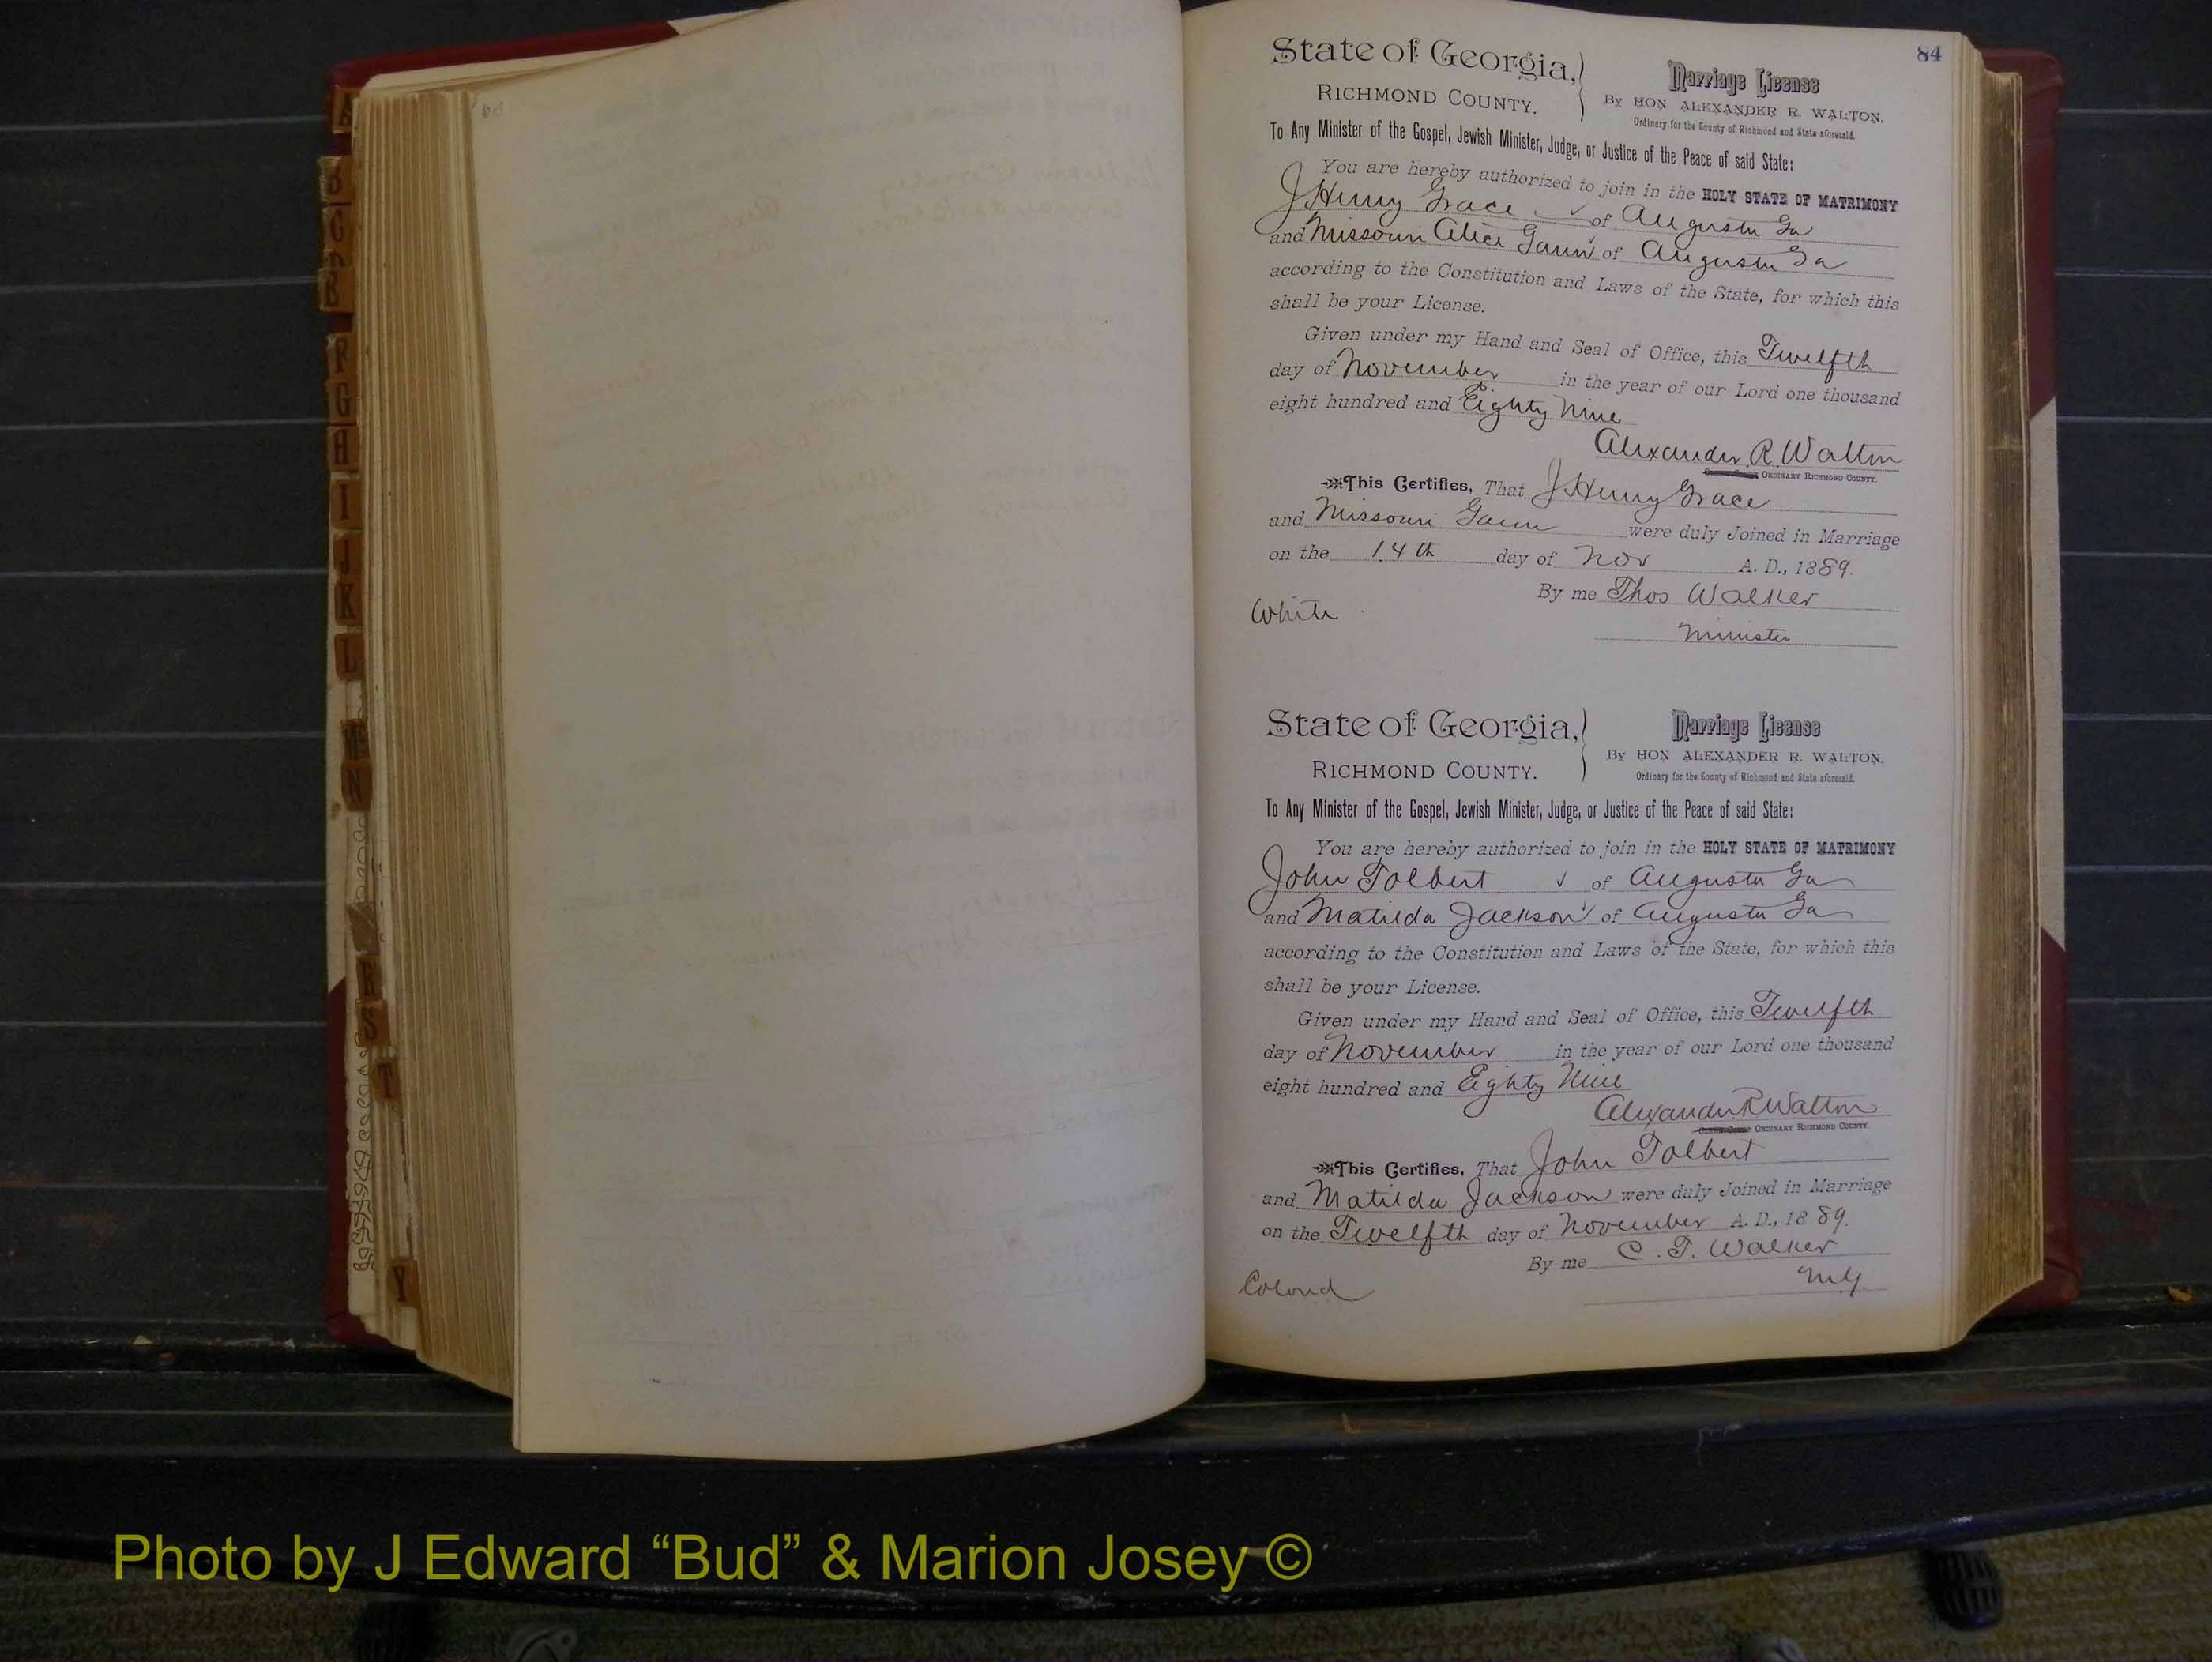 84
State of Georgia,
RICHMOND COUNTY.
Marriage License
By HON ALEXANDER R. WALTON,
Ordinary for the County of Richmond and State aforesaid.
To Any Minister of the Gospel, Jewish Minister, Judge, or Justice of the Peace of said State:
You are hereby authorized to join in the HOLY STATE OF MATRIMONY
J Henry Grace of Augusta Ga
and Missouri Alice Gann of Augusta Ga
according to the Constitution and Laws of the State, for which this
shall be your License.
Given under my Hand and Seal of Office, this Twelfth
day of November in the year of our Lord one thousand
eight hundred and Eighty Nine
Alexander R. Walton
ORDINARY RICHMOND COUNTY.
This Certifies, That J Henry Grace
and Missouri Gann were duly Joined in Marriage
on the 14th day of Nov A. D., 1889.
By me Thos Walker
White
Minister
State of Georgia,
RICHMOND COUNTY.
Marriage License
By HON ALEXANDER R. WALTON.
Ordinary for the County of Richmond and State aforesaid.
To Any Minister of the Gospel, Jewish Minister, Judge, or Justice of the Peace of said State:
You are hereby authorized to join in the HOLY STATE OF MATRIMONY
John Tolbert of Augusta Ga
and Matilda Jackson of Augusta Ga
according to the Constitution and Laws of the State, for which this
shall be your License.
Given under my Hand and Seal of Office, this Twelfth
day of November in the year of our Lord one thousand
eight hundred and Eighty Nine
Alexander R Walton
ORDINARY RICHMOND COUNTY.
This Certifies, That John Tolbert
and Matilda Jackson were duly Joined in Marriage
on the Twelfth day of November A. D., 1889.
By me C. T. Walker
Colored
M.G.
A
B
C
F
G
H
I
J
K
L
M
N
R
S
T
Y
Photo by J Edward “Bud” & Marion Josey ©